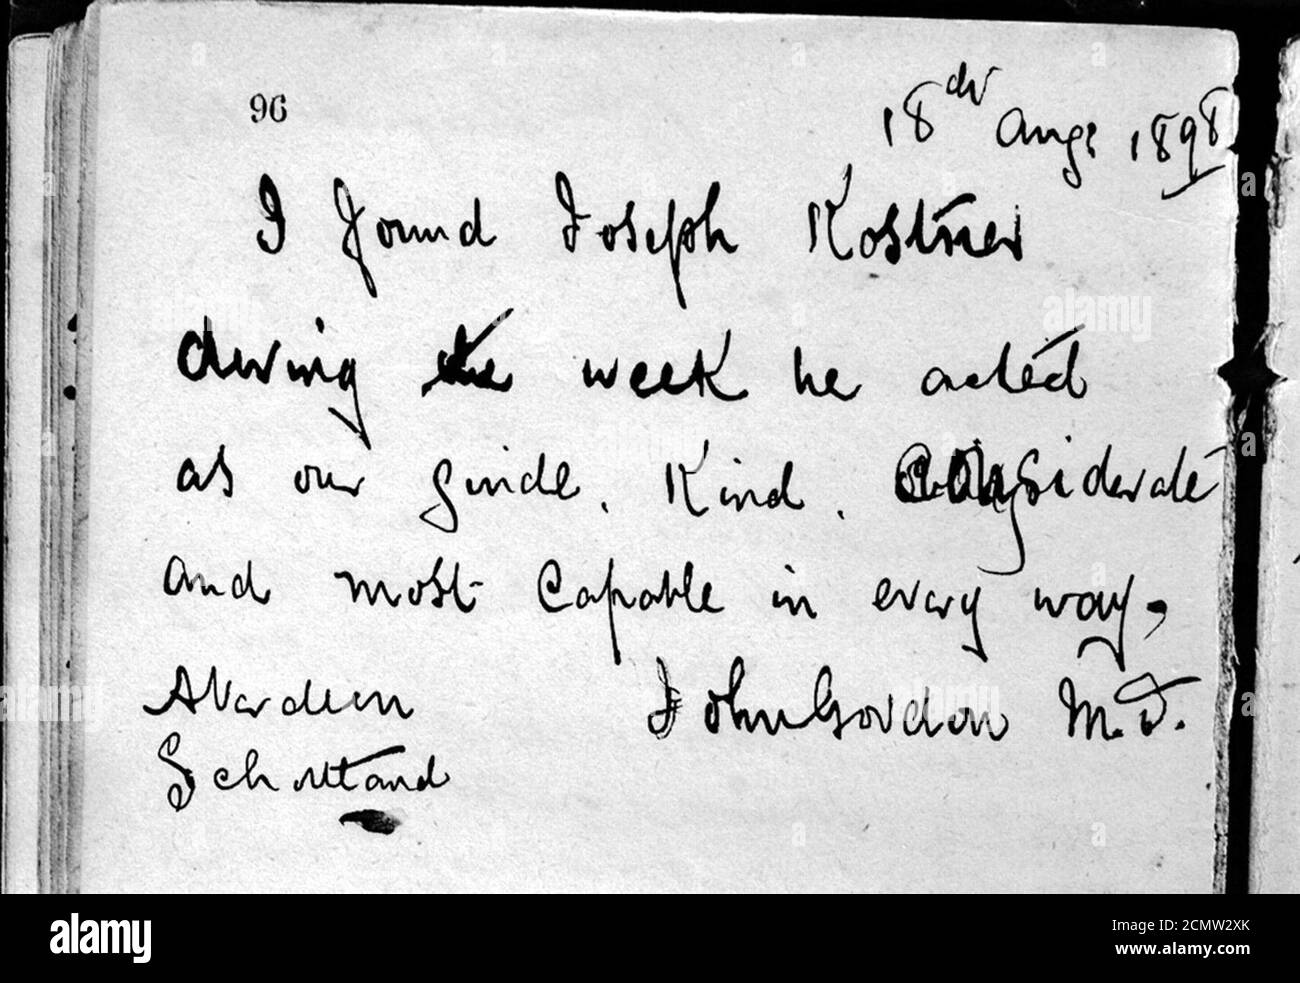 96
18th Augt 1898
I found Joseph Kostner
during the week he acted
as our guide. Kind. Considerate
and most Capable in every way,
Aberdeen John Gordon M.D.
Schottland
alamy
Image ID: 2CMW2XK
www.alamy.com